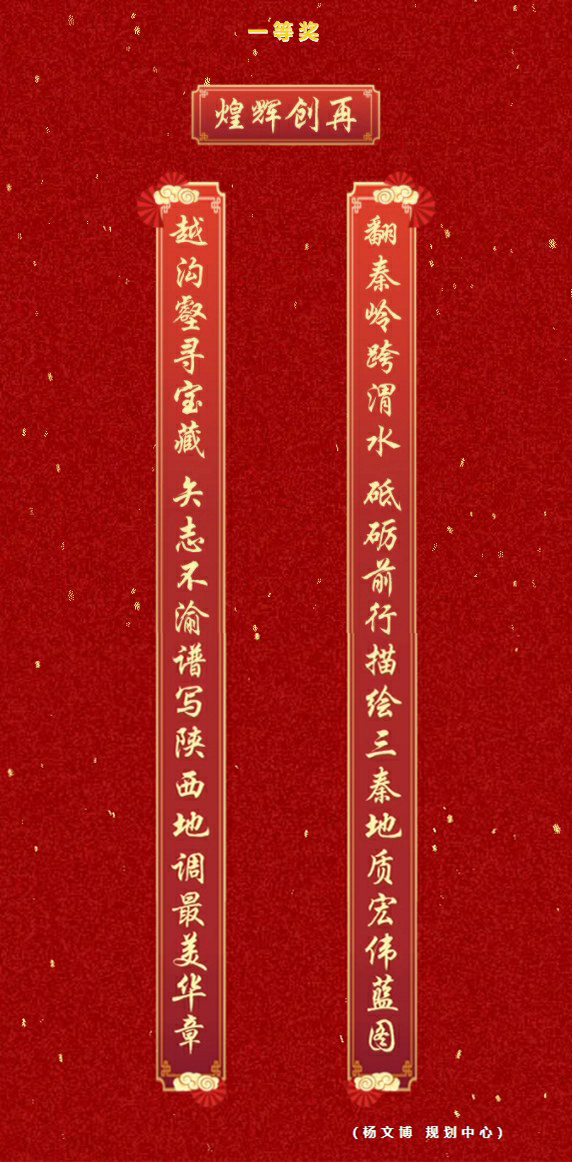 一等奖
再创辉煌
翻秦岭跨渭水 砥砺前行描绘三秦地质宏伟蓝图
越沟壑寻宝藏 矢志不渝谱写陕西地调最美华章
(杨文博 规划中心)